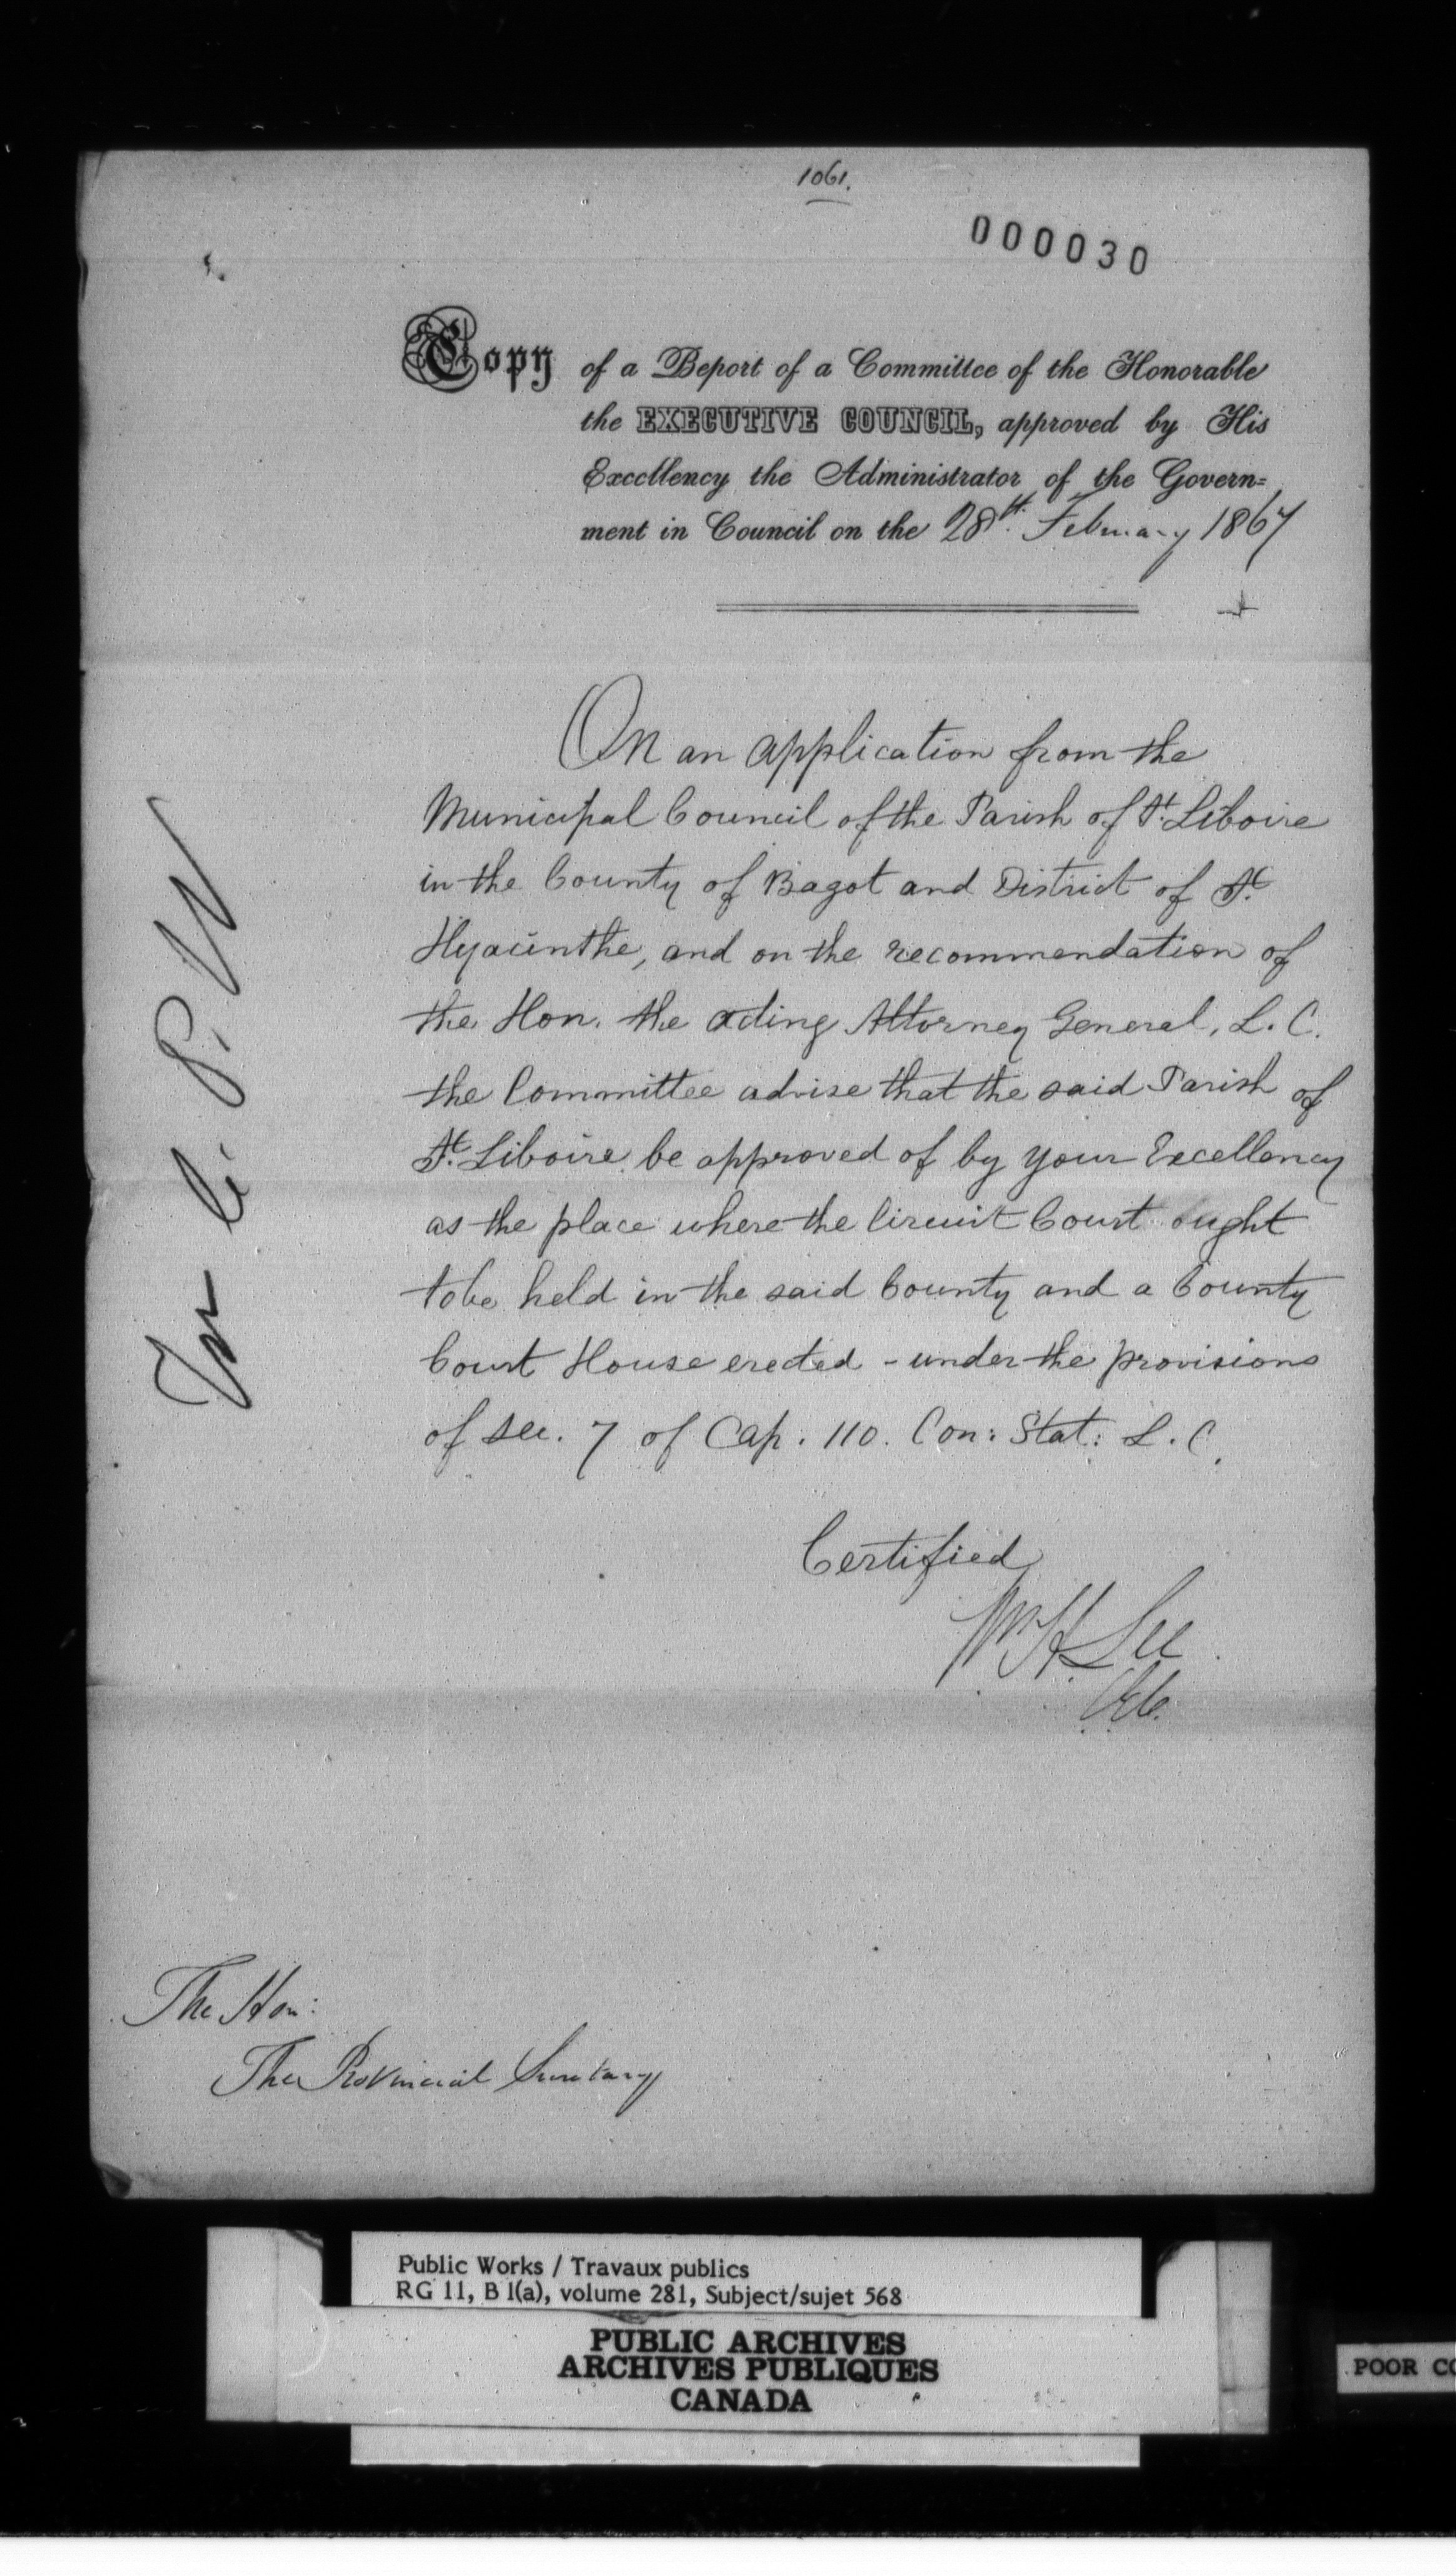 1061.
000030
Copy of a Report of a Committee of the Honorable
the EXECUTIVE COUNCIL, approved by His
Excellency the Administrator of the Govern=
ment in Council on the 28th. February 1867
On an application from the
Municipal Council of the Parish of St. Liboire
in the County of Bagot and District of St.
Hyacinthe, and on the recommendation of
the Hon. the acting Attorney General, L. C.
the Committee advise that the said Parish of
St. Liboire be approved of by Your Excellency
as the place where the Circuit Court ought
to be held in the said County and a County
Court House erected - under the provisions
of sec. 7 of Cap. 110. Con: Stat: L. C.
Certified
Wm H Lee
C.E.C.
For C. P. W
The Hon:
The Provincial Secretary
Public Works / Travaux publics
RG 11, B 1(a), volume 281, Subject/sujet 568
PUBLIC ARCHIVES
ARCHIVES PUBLIQUES
CANADA
POOR CO